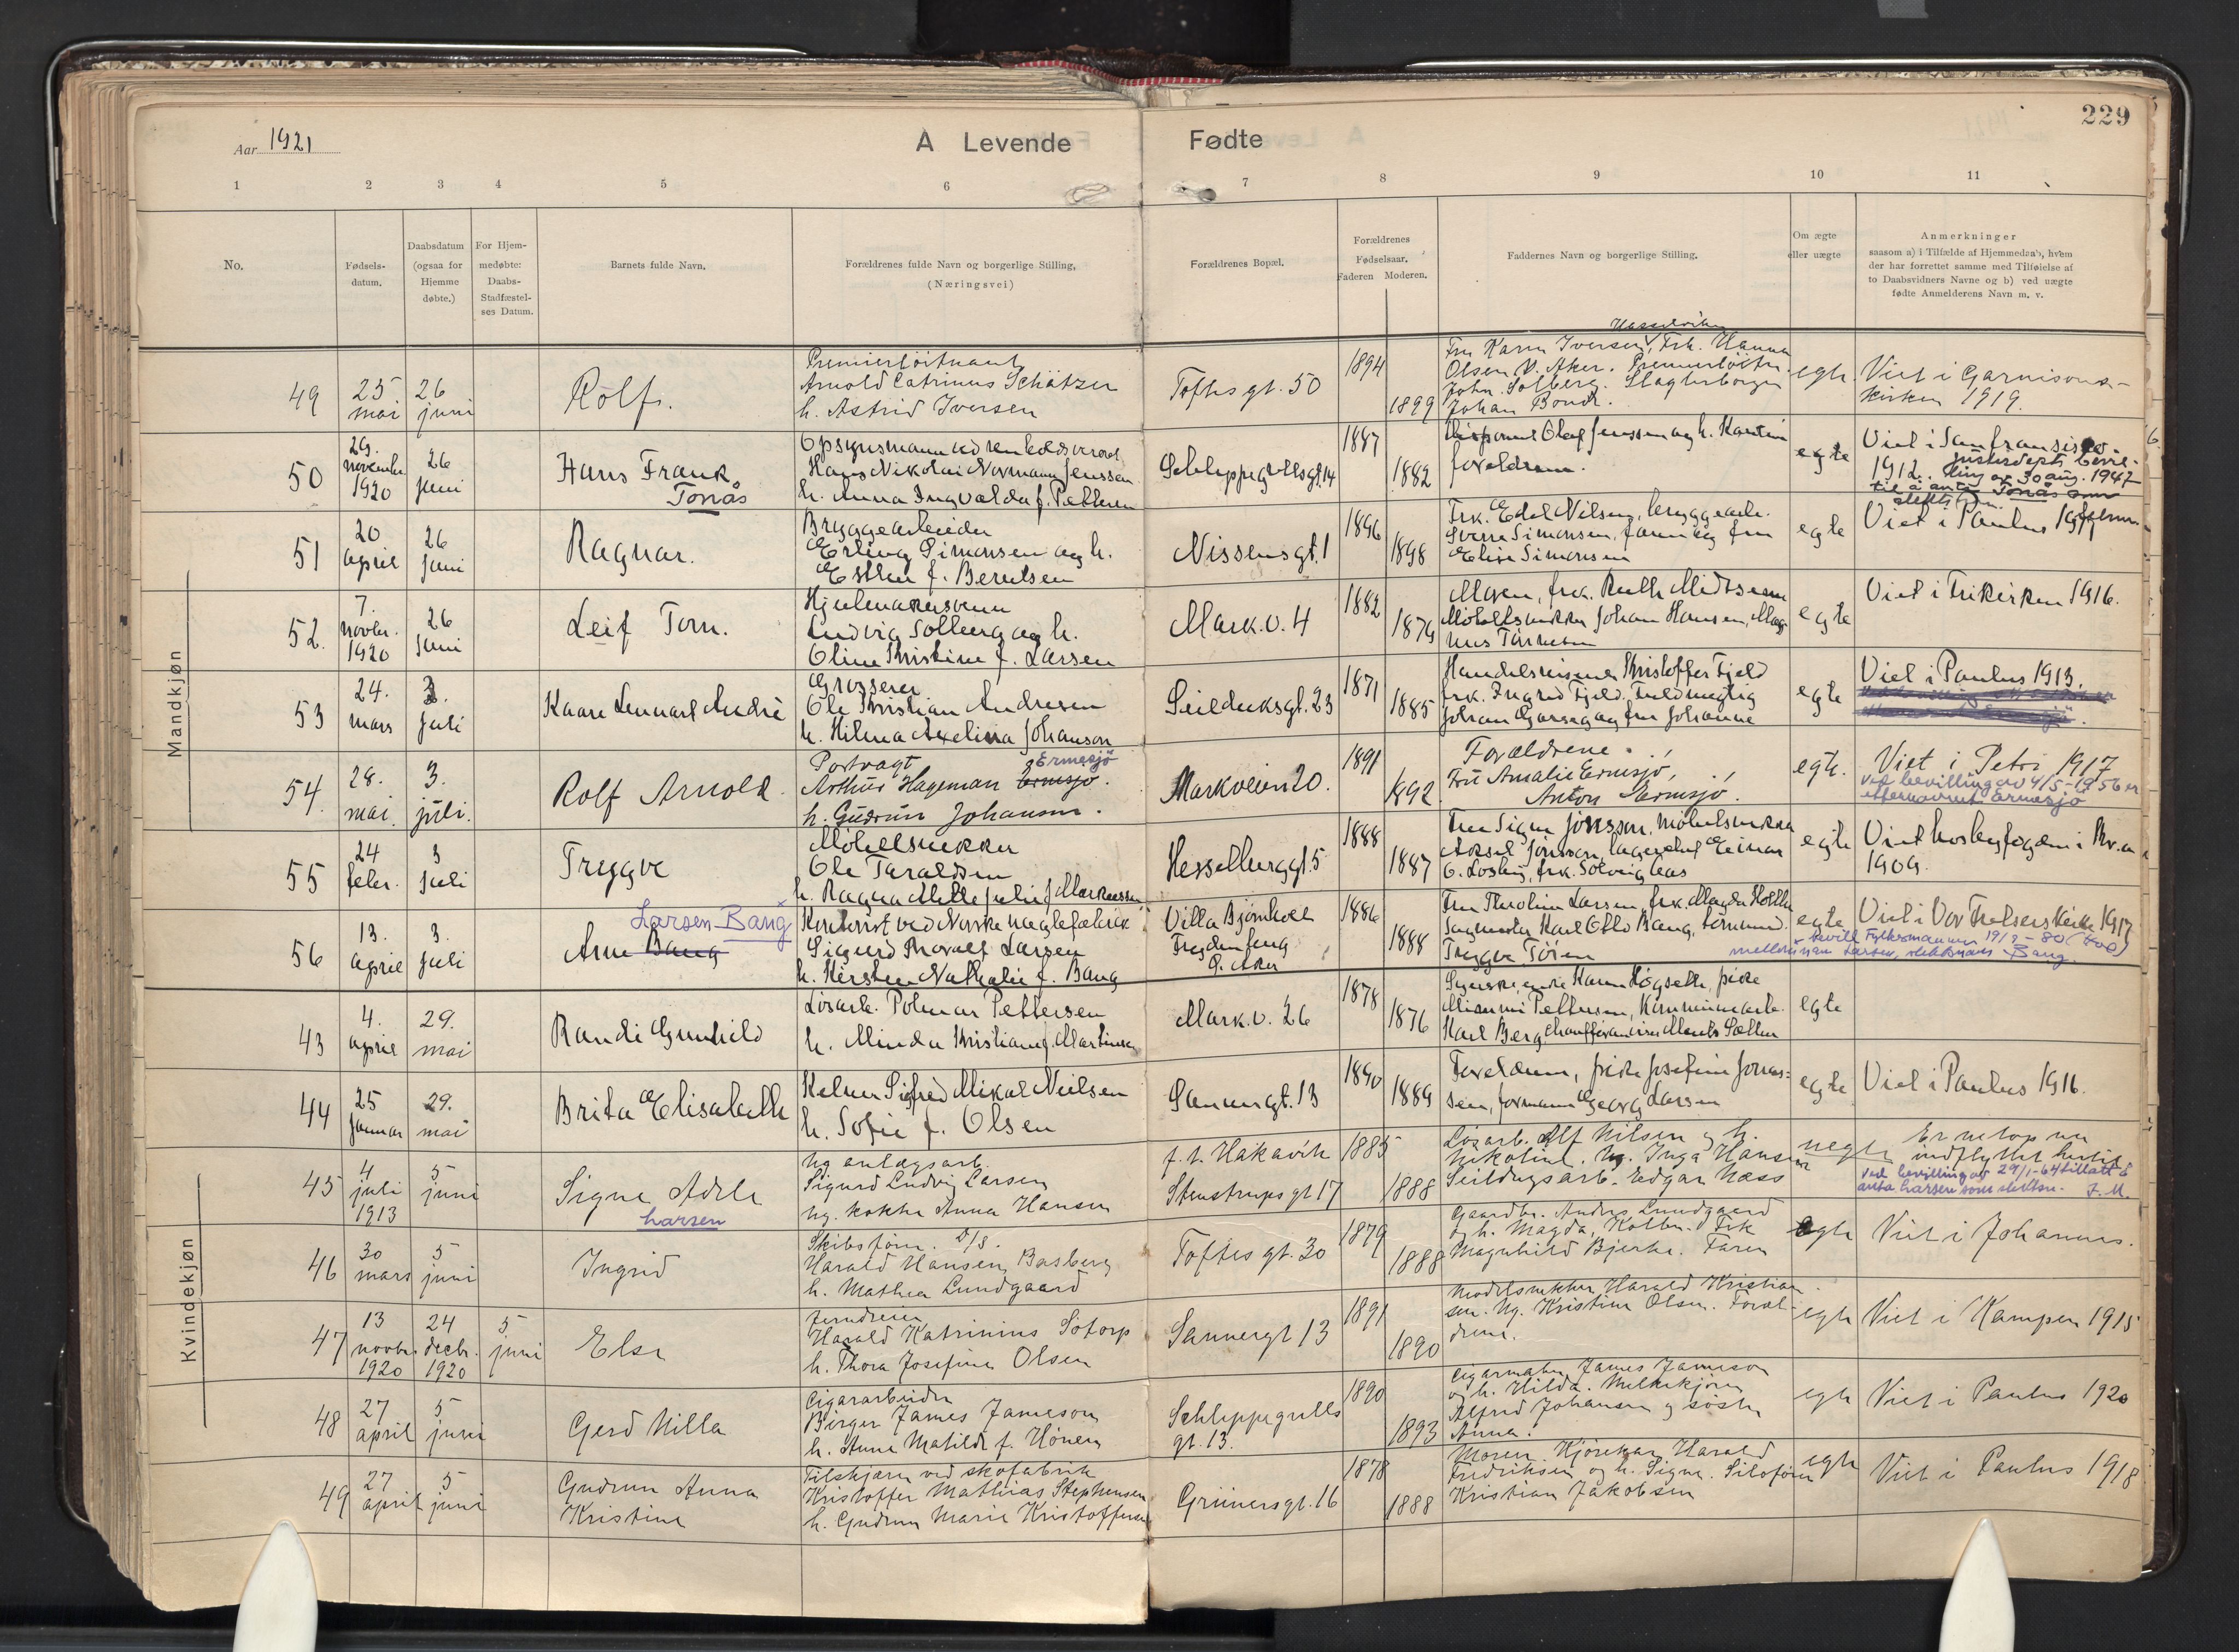 229
Aar 1921
A Levende Fødte
1 2 3 4 5 6 7 8 9 10 11
No.
Fødsels-
datum.
Daabsdatum
(ogsaa for
Hjemme
døbte.)
For Hjem-
medøbte:
Daabs-
Stadfæstel-
ses Datum.
Barnets fulde Navn.
Forældrenes fulde Navn og borgerlige Stilling.
(Næringsvei)
Forældrenes Bopæl.
Forældrenes
Fødselsaar.
Faderen Moderen.
Faddernes Navn og borgerlige Stilling.
Om ægte
eller uægte
Anmerkninger
saasom a) i Tilfælde af Hjemmedaab, hvem
der har forrettet samme med Tilføielse af
to Daabsvidners Navne og b) ved uægte
fødte Anmelderens Navn m. v.
Mandkjøn
49
25
mai
26
juni
Rolf.
Premierløitnant
Arnold Catrinus Schätzer
h. Astrid Iversen
Toftes gt. 50
1894
1899
Fru Karen Iversen, Frk. Hanna
Olsen V. Aker. Premierløitn.
John Solberg. Slagterborger
Johan Bonde.
egte
Viet i Garnisons-
kirken 1919.
50
29.
november
1920
26
juni
Hans Frank
Tonås
Opsynsmann ved renholdsverket
Hans Nikolai Normann Jenssen
h. Anna Ingvalda f. Pettersen
Schleppegrellsgt. 14
1887
1882
Disponent Olaf Jenssen og h.
foreldrene.
egte
Viet i San fransisco
1912. Justisdepts bevil-
ling av 30 aug. 1947
til å anta Tonås som
slektsnavn.
51
20
april
26
juni
Ragnar.
Bryggearbeider
Erling Simonsen og h.
Esther f. Berntsen
Nissensgt. 1
1896
1898
Frk. Edel Nilsen, bryggearb.
Sverre Simonsen, farin og fru
Elise Simonsen
egte
Viet i Paulus
52.
7.
novbr.
1920
26
juni
Leif Torn.
Hjulmakersvenn
Ludvig Solberg og h.
Oline Kristine f. Larsen
Mark.v. 4
1882
1879
Moren, frk. Ruth Midtsem
Møbelsnekker Johan Hansen, Mag-
nus
egte
Viet i Frikirken 1916.
53
24.
mars
3.
juli
Kaare Lennart André
Grosserer
Ole Kristian Andresen
h. Hilma Axelina Johanson
Seilduksgt. 23
1871
1885
Handelsreisende Kristoffer Fjeld
frk. Ingrid Fjeld. Fuldmegtig
Johan og fru Johanne
egte
Viet i Paulus 1913.
54
28.
mai.
3.
juli.
Rolf Arnold
Portvagt Ermesjø
Arthur Hageman Ermsjø.
h. Gudrun Johansen.
Markveien 20.
1891
1892
Forældrene.
Fru Amalie Ermsjø,
Anton Ermsjø.
egte.
Viet i Petri 1917
ved bevilling av 4/5-1956 er
etternavnet Ermesjø
55
24
febr.
3
juli
Trygve
Møbelsnekker
Ole Taraldsen
h. Ragna Mette Julie f. Markussen
Hesselberggt. 5
1888
1887
Fru Signe Jonsson, møbelsnekker
Aksel Jonsson, lagerchef Einar
O. Losby, frk. Solveig Aas
egte
Viet hos byfogden i Kr.a
1909.
56
13.
april
3.
juli
Larsen-Bang
Arne Bang
Kontorist ved Norske naglefabrik
Sigurd Thoralf Larsen
h. Kirsten Nathalie f. Bang
Villa Bjørnholt
Frydenberg
Ø. Aker
1886
1888
Fru Karoline Larsen, frk. Magda Holth
Sagmester Karl Otto Bang, tørnmand
Trygve Tøien
egte
Viet i Vor Frelsers Kirke 1917
bevill Fylkesmannen 19/2-80
mellomnavn Larsen, slektsnavn Bang.
Kvindekjøn
43
4.
april
29.
mai
Randi Gunhild
Løsarb. Polmar Pettersen
h. Minda Kristiane f. Martinsen
Mark.v. 26
1878
1876
Syerske, enke Karen Høgseth, pike
Mimmi Pettersen, Kommunearb.
Karl Berg
egte
44
25
Januar
29.
mai
Brita Elisabeth
Kelner Sigfred Mikal Nielsen
h. Sofie f. Olsen
Sannergt. 13
1890
1889
Foreldrene, pike Josefine Jonas-
sen, formann Georg Larsen
egte
Viet i Paulus 1916.
45
4
juli
1913
5
juni
Signe Adele
Larsen
Ug. anlægsarb.
Sigurd Ludvig Larsen
ug. kokke Anna Hansen
f. t. Hakavik
Stenstrups gt 17
1885
1888
Løsarb. Alf Nilsen og h.
Nikoline. Ug. Inga Hansen
Seildugsarb. Edgar Næss
uegte
Er netop nu
indflyttet hertil
ved bevilling av 29/1-64 tillatt å
anta Larsen som slektsn. J.M.
46
30
mars
5
juni
Ingrid
Skibsfører D/S.
Harald Hansen Basberg
h. Mathea Lundgaard
Toftes gt. 30
1879
1888
Gaardbr. Anders Lundgaard
og h. Magda, Kolbu. Frk
Magnhild Bjerke. Faren
egte
Viet i Johannes.
47
13
novbr.
1920
24
decbr.
1920
5
juni
Else
Jerndreier
Harald Katrinius Sotorp
h. Thora Josefine Olsen
Sannergt 13
1891
1890
Modelsnekker Harald Kristian-
sen. Ug. Kristine Olsen. Foræl-
drene.
egte
Viet i Kampen 1915
48
27
april
5
juni
Gerd Milla
Cigararbeider
Birger James Jameson
h. Anna Matilde f. Hønen
Schleppegrells
gt. 13.
1890
1893
Cigarmaker James Jameson
og h. Hilda. Melkekjører
Alfred Johansen og søster
Anna.
egte
Viet i Paulus 1920
49
27
april
5
juni
Gudrun Anna
Kristine
Tilskjærer ved skofabrik
Kristoffer Mathias Stephensen
h. Gudrun Marie Kristoffersen
Grünersgt. 16
1878
1888
Moren. Kjørekar Harald
Fredriksen og h. Signe. Siloform
Kristian Jakobsen
egte
Viet i Paulus 1918